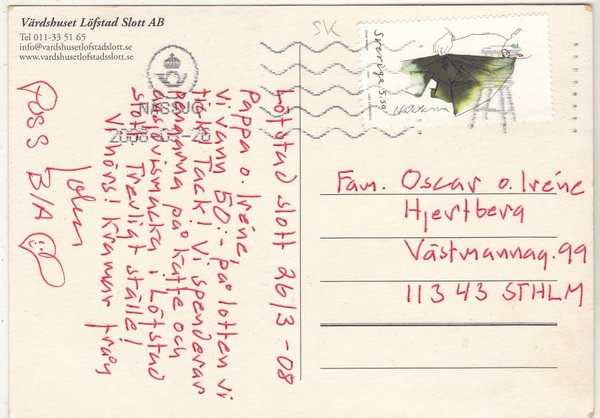 Värdshuset Löfstad Slott AB
Tel 011-33 51 65
info@vardshusetlofstadsslott.se
www.vardshusetlofstadsslott.se
SK
Sverige 5.50
NÄSSJÖ
2008-03-26
Löfstad slott 26/3-08
Pappa o. Iréne,
Vi vann 50:- på lotten vi
fick! Tack! Vi spenderar
pengarna på kaffe och
smacka i Löfstad
slott. Trevligt ställe!
Vi hörs! Kramar från
John
Puss
BIA
Fam. Oscar o. Iréne
Hjertberg
Västmannag. 99
113 43 STHLM